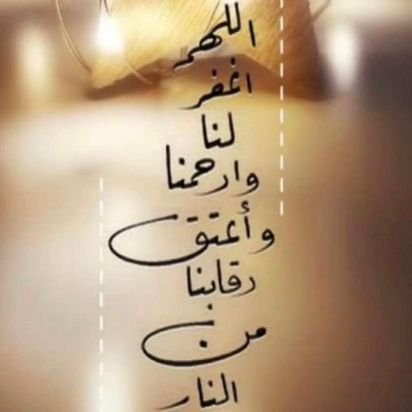 اللهم
اغفر
لنا
وارحمنا
وأعتق
رقابنا
من
النار